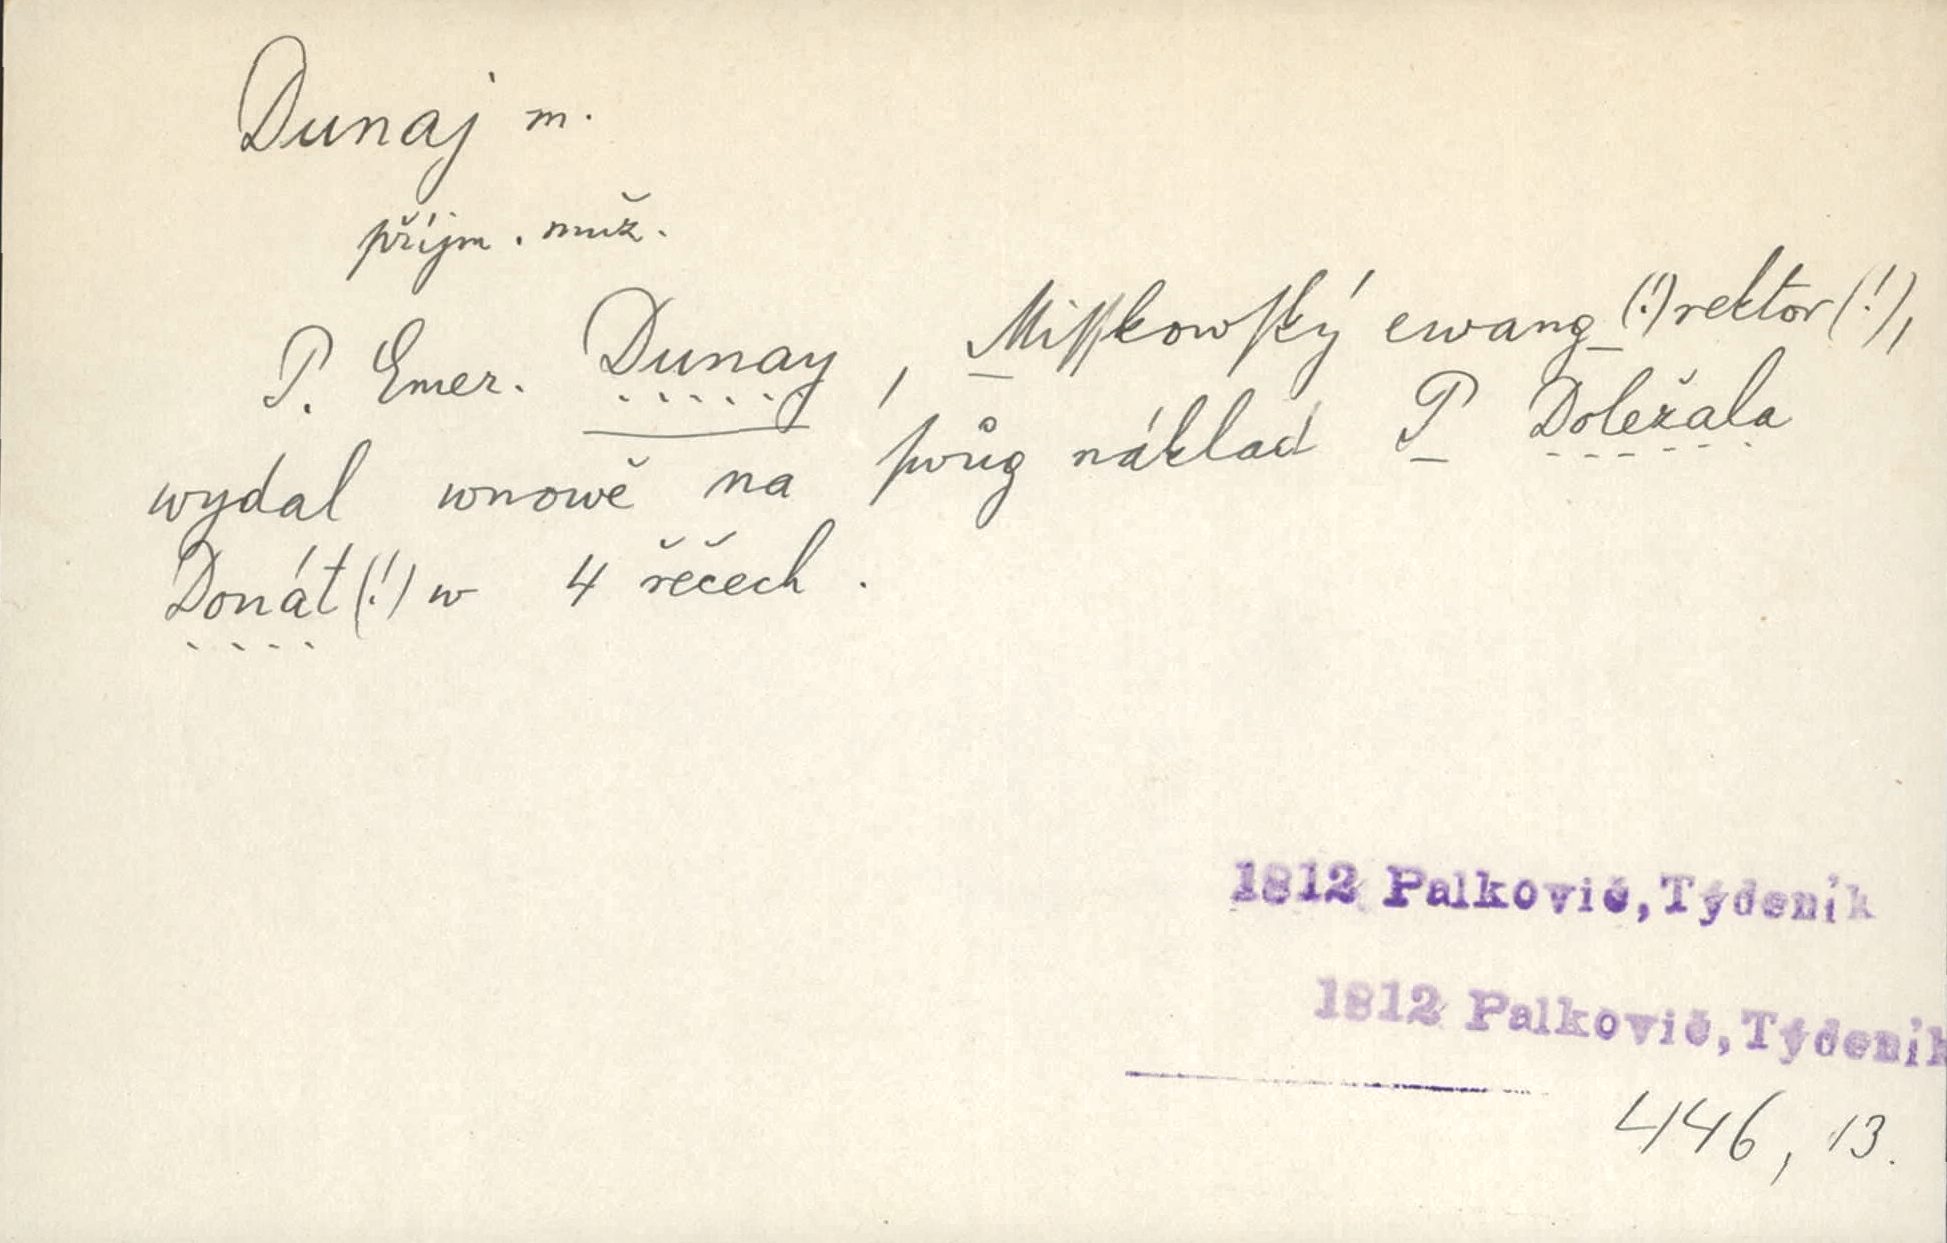 Dunaj m.
příjm. muž.
P. Emer. Dunay, Miſſkowſký ewang (!) rektor (!),
wydal wnowě na ſwůg náklad P Doležala
Donát (!) w 4 řěčech.
1812 Palkovič, Týdeník
1812 Palkovič, Týdeník
446, 13.